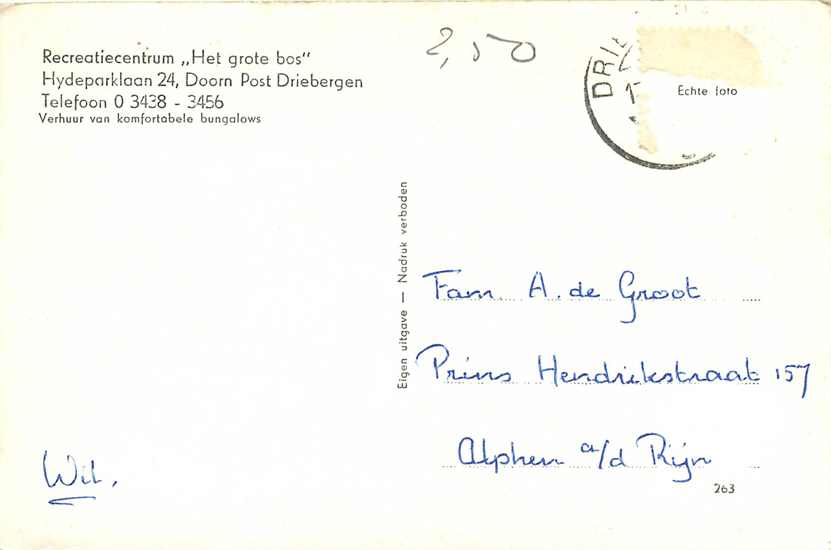 Recreatiecentrum „Het grote bos"
Hydeparklaan 24, Doorn Post Driebergen
Telefoon 0 3438 - 3456
Verhuur van komfortabele bungalows
2,50
DRI
Echte foto
Eigen uitgave — Nadruk verboden
Fam. A. de Groot
Prins Hendrikstraat 157
Alphen a/d Rijn
Wil.
263